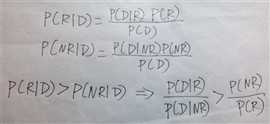 P(R|D) = P(D|R) P(R) / P(D)
P(NR|D) = P(D|NR)P(NR) / P(D)
P(R|D) > P(NR|D) ⇒ P(D|R) / P(D|NR) > P(NR) / P(R)